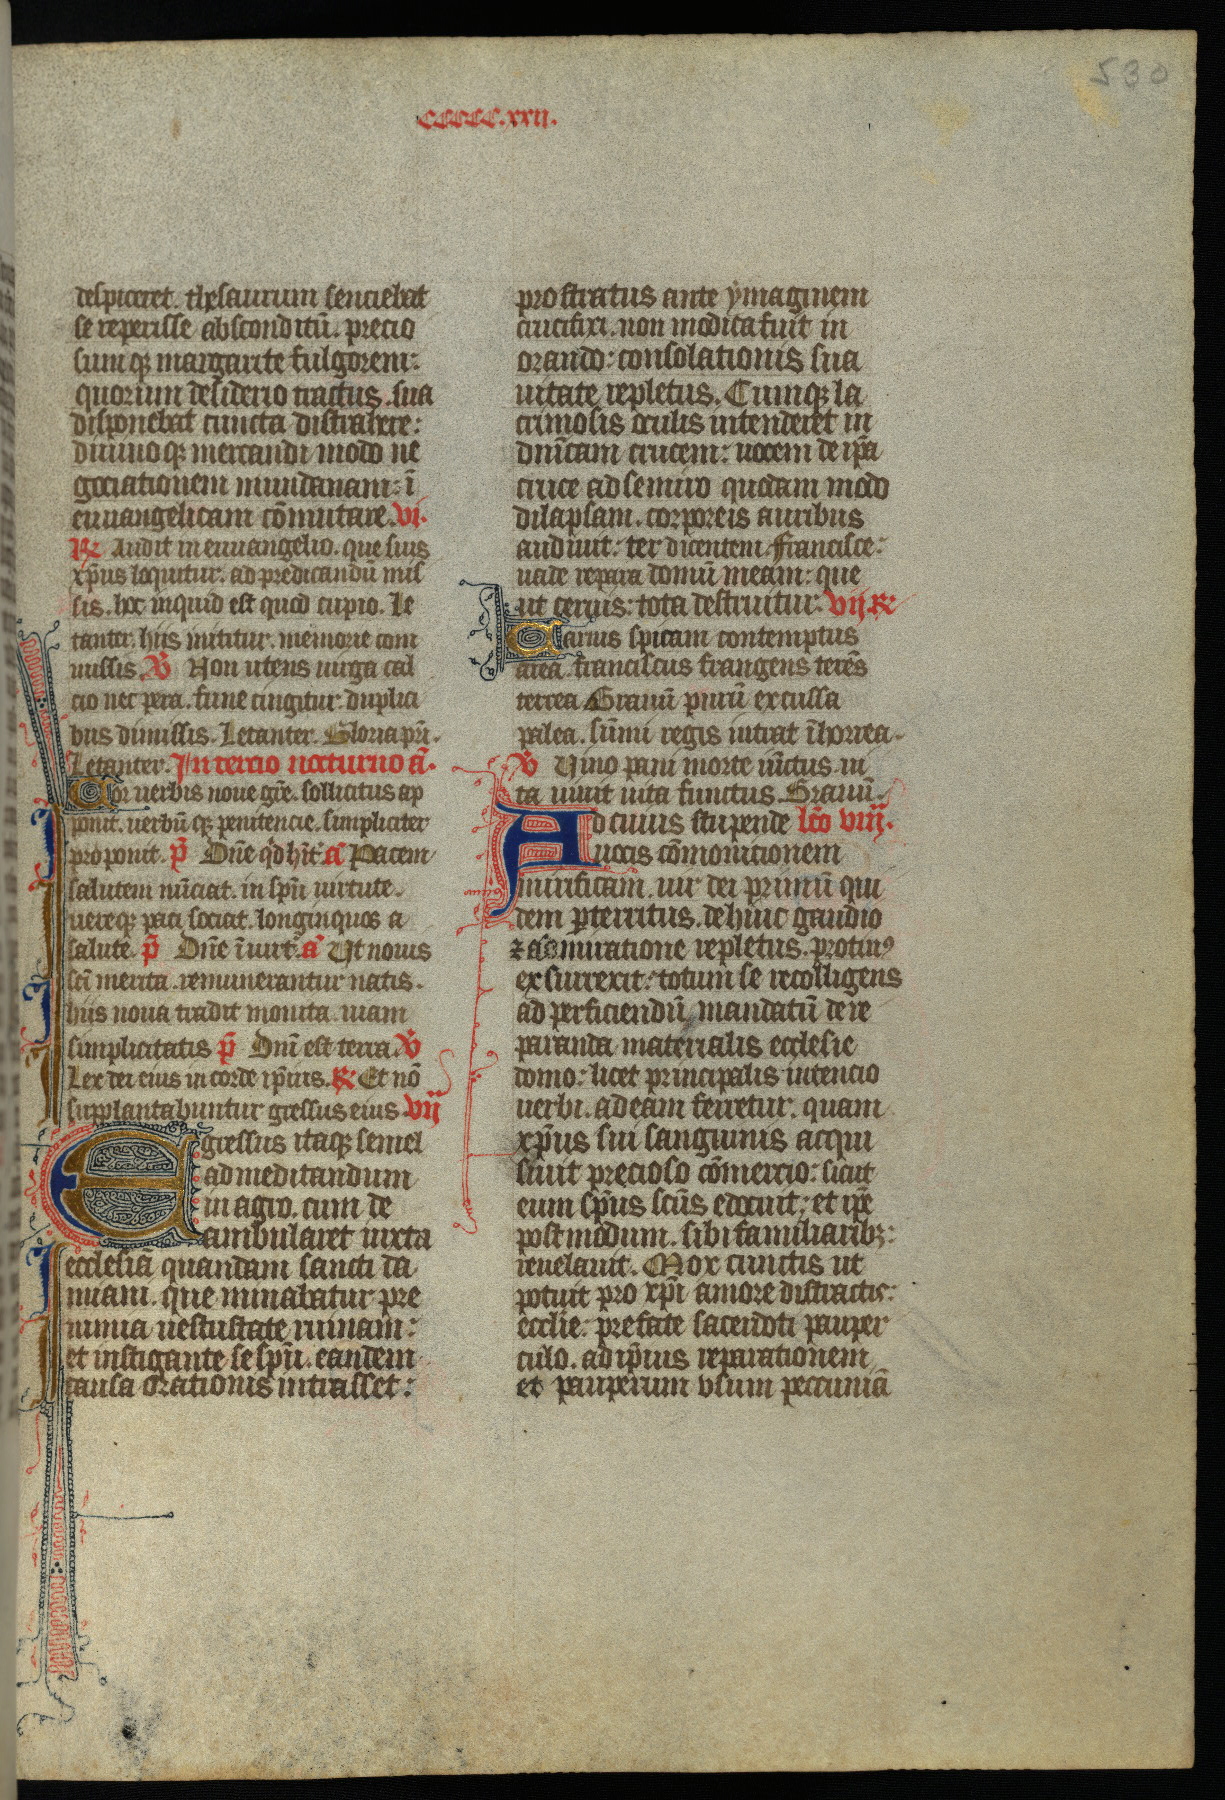 530
CCCCC.xxii.
despiceret. thesaurum senciebat
se reperisse absconditũ. precio
sumqꝫ margarite fulgorem:
quorum desiderio tractus. sua
disponebat cuncta distrahere:
diuinoqꝫ mercandi modo ne
gociationem mundanam: ĩ
euuangelicam cõmutare. vi.
℟ Audit in euuangelio. que suis
xp̃us loquitur. ad predicandũ mis
sis. hoc inquid est quod cupio. Le
tanter. hiis innititur. memorie com
missis. ℣ Non utens uirga cal
cio nec pera. fune cingitur. dupli
bus dimissis. Letanter. Gloria pr̃i.
Letanter. In tercio nocturno a᷃.
Cor uerbis noue gr̃e. sollicitus ap
ponit. uerbũqꝫ penitencie. simpliciter
proponit. p̃ Dñe q̃d hĩt. a᷃ Pacem
salutem nũciat. in sp̃u uirtute.
uereqꝫ paci sociat. longinquos a
salute. p̃ Dñe ĩ uirt̃. a᷃ Ut nouis
sc̃i merita. remunerantur natis.
hiis noua tradit monita. uiam
simplicitatis p̃ Dñi est terra. ℣
Lex dei eius in corde ip̃ius. ℟ Et nõ
supplantabuntur gressus eius vij
Egressus itaqꝫ semel
ad meditandum
in agro. cum de
ambularet iuxta
ecclesiã quandam sancti da
miani. que minabatur pre
nimia uestustate ruinam:
et instigante se sp̃u. eandem
causa orationis intrasset:
prostratus ante ymaginem
crucifixi. non modica fuit in
orando: consolationis sua
uitate repletus. Cumqꝫ la
crimosis oculis intenderet in
dñicam crucem: uocem de ip̃a
cruce ad se miro quodam modo
dilapsam. corporeis auribus
audiuit: ter dicentem. Francisce:
uade repara domũ meam: que
ut cernis: tota destruitur. vij. ℟
Carnis spicam contemptus
area. franciscus frangens terẽs
terrea Granũ purũ excussa
palea. sũmi regis intrat ĩ horrea.
℣ Uiuo pani morte iũctus. ui
ta uiuit uita functus. Granũ.
Ad cuius stupende lc̃o viij.
uocis cõmonitionem
mirificam. uir dei primũ qui
dem p̃territus. dehinc gaudio
⁊ admiratione repletus. protinꝰ
exsurrexit: totum se recolligens
ad perficiendũ mandatũ de re
paranda materialis ecclesie
domo: licet principalis intencio
uerbi. ad eam ferretur. quam
xp̃us sui sanguinis acqui
siuit precioso cõmercio: sicut
eum sp̃us sc̃us edocuit; et ip̃e
postmodum. sibi familiaribꝫ:
reuelauit. Mox cunctis ut
potuit pro xp̃i amore distractis:
ecclie: prefate sacerdoti pauper
culo. ad ip̃ius reparationem
et pauperum vsum peccuniã